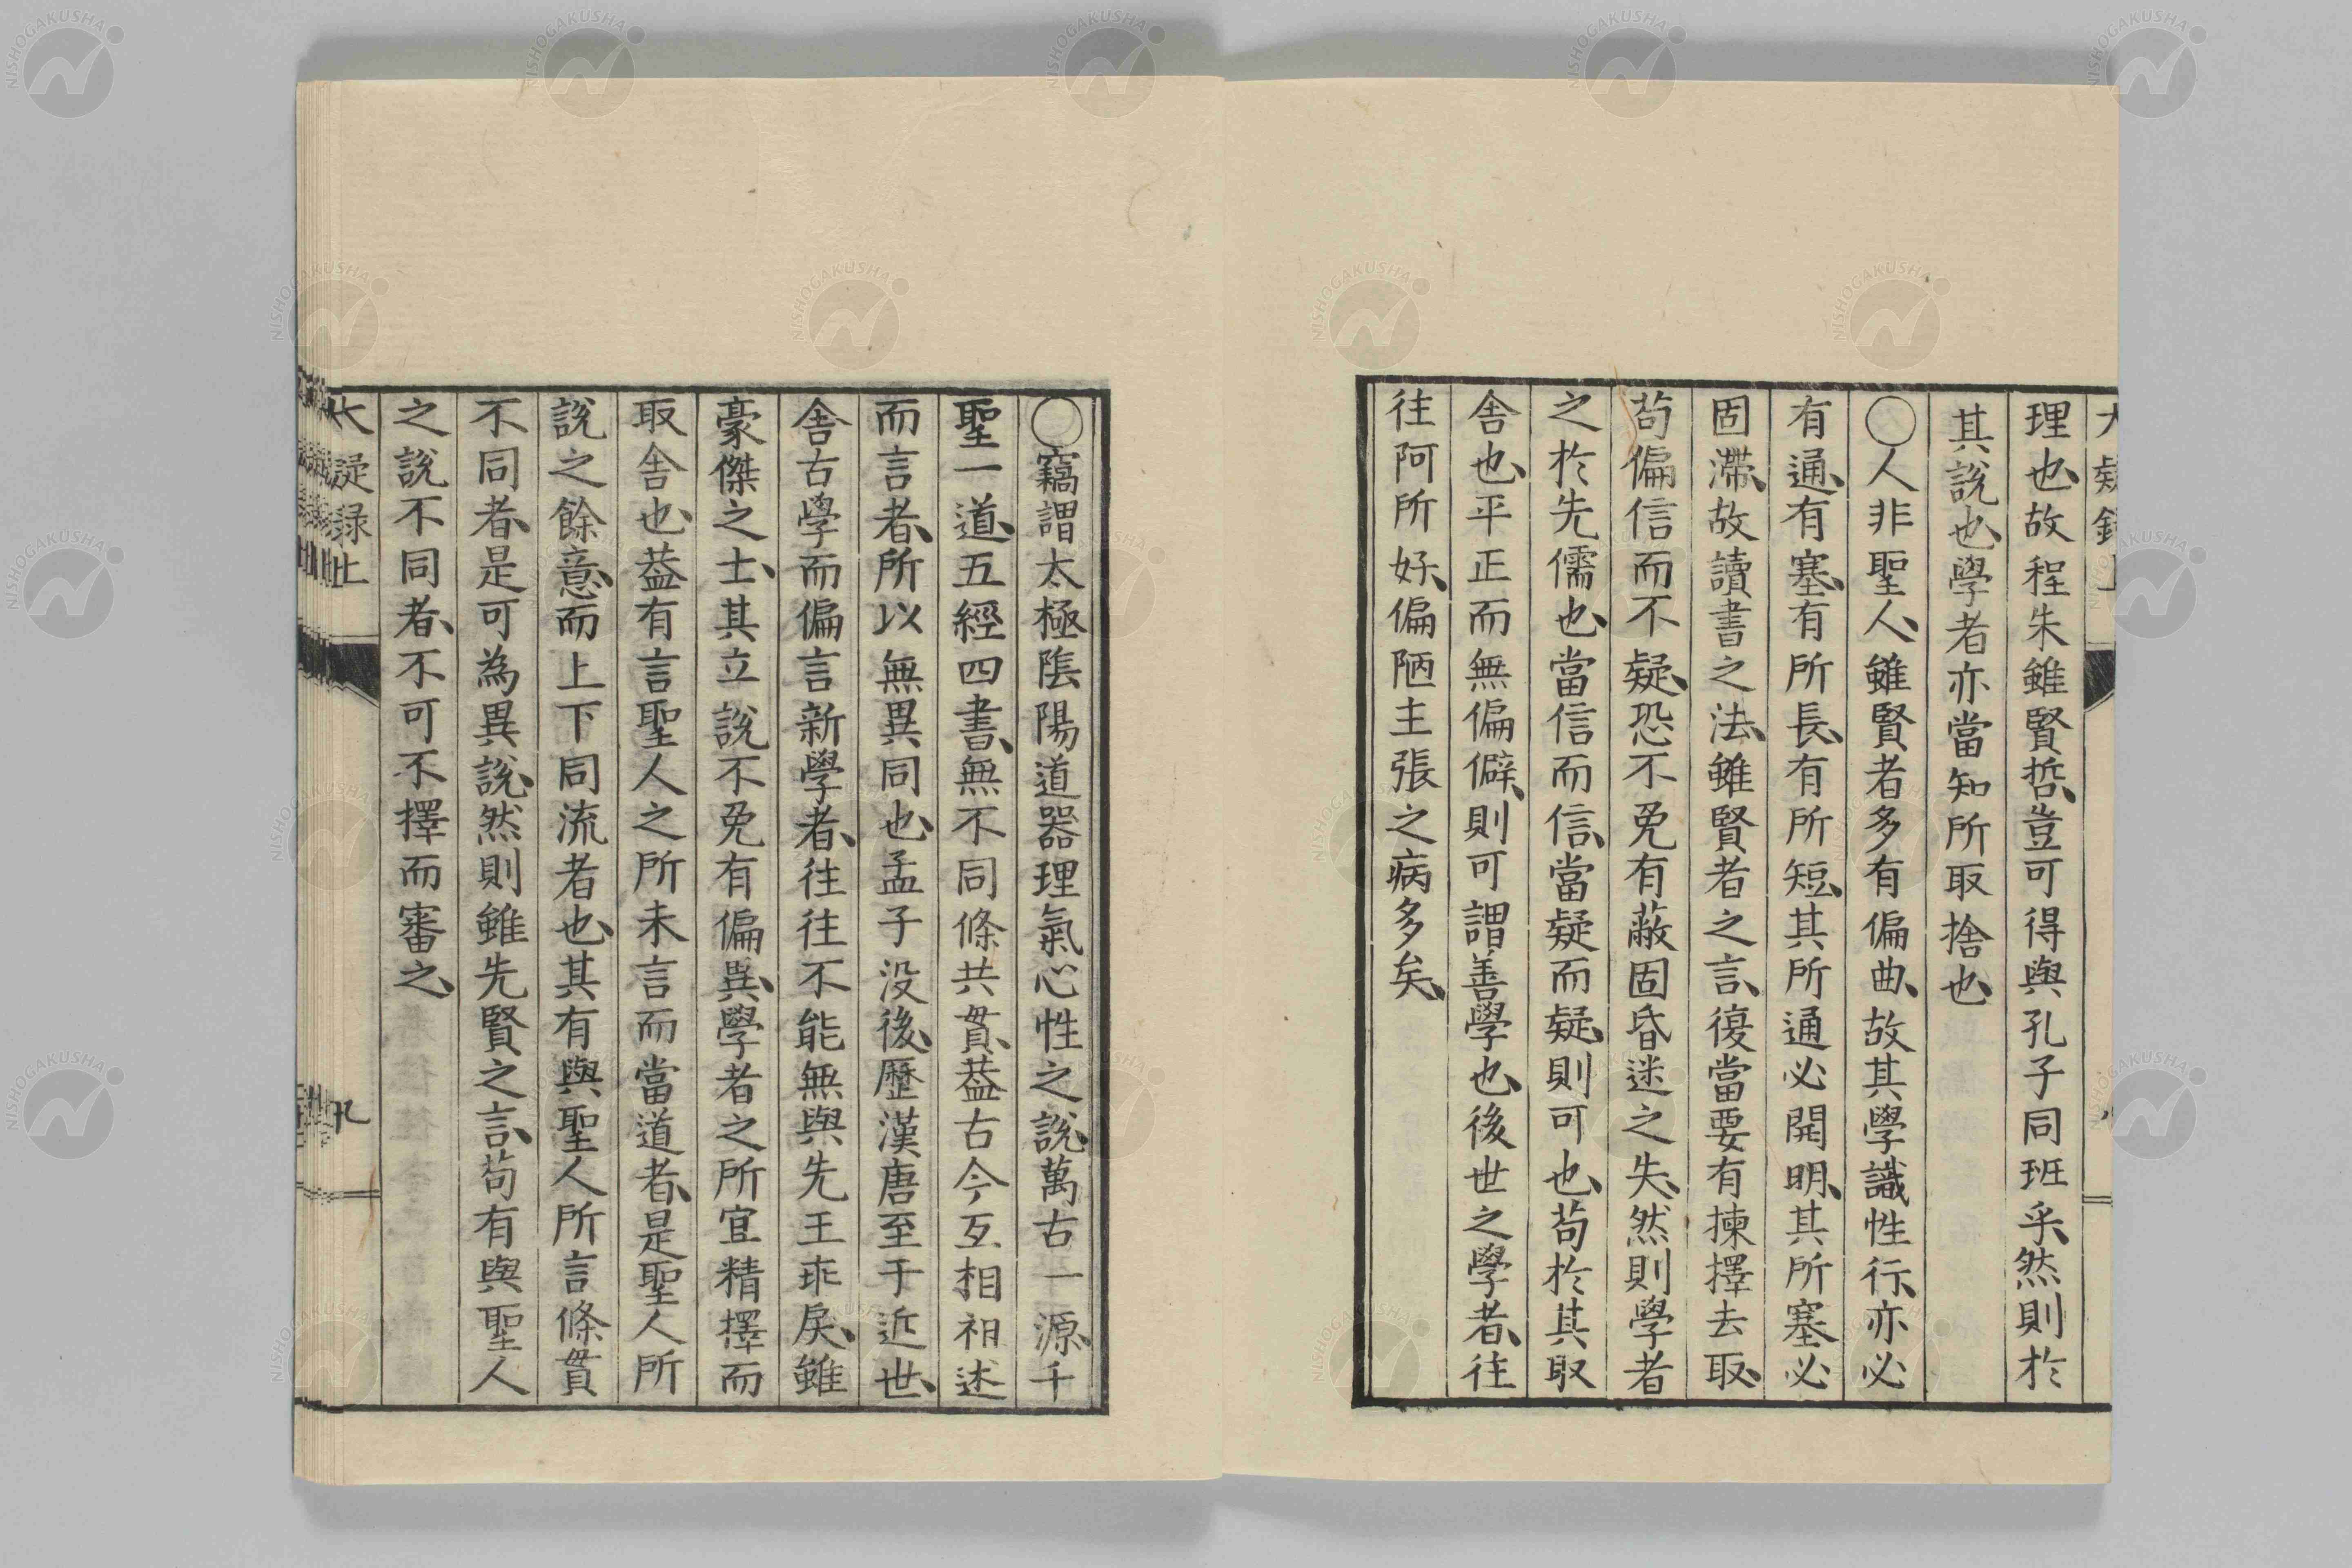 大疑錄上
理也、故程朱雖賢哲、豈可得與孔子同班乎、然則於
其說也、學者亦當知所取捨也、
○人非聖人、雖賢者多有偏曲、故其學識性行、亦必
有通、有塞、有所長、有所短、其所通必開明、其所塞必
固滯、故讀書之法、雖賢者之言、復當要有揀擇去取、
苟偏信而不疑、恐不免有蔽固昏迷之失、然則學者
之於先儒也、當信而信、當疑而疑、則可也、苟於其取
舍也、平正而無偏僻、則可謂善學也、後世之學者、往
往阿所好、偏陋主張之病多矣、
○竊謂太極陰陽道器理氣心性之說、萬古一源、千
聖一道、五經四書、無不同條共貫、葢古今互相祖述
而言者、所以無異同也、孟子没後、歷漢唐至于近世、
舍古學而偏言新學者、往往不能無與先王乖戾、雖
豪傑之士、其立說不免有偏異、學者之所宜精擇而
取舍也、葢有言聖人之所未言而當道者、是聖人所
說之餘意、而上下同流者也、其有與聖人所言條貫
不同者、是可為異說、然則雖先賢之言、苟有與聖人
之說不同者、不可不擇而審之、
大疑録上
九
NISHOGAKUSHA